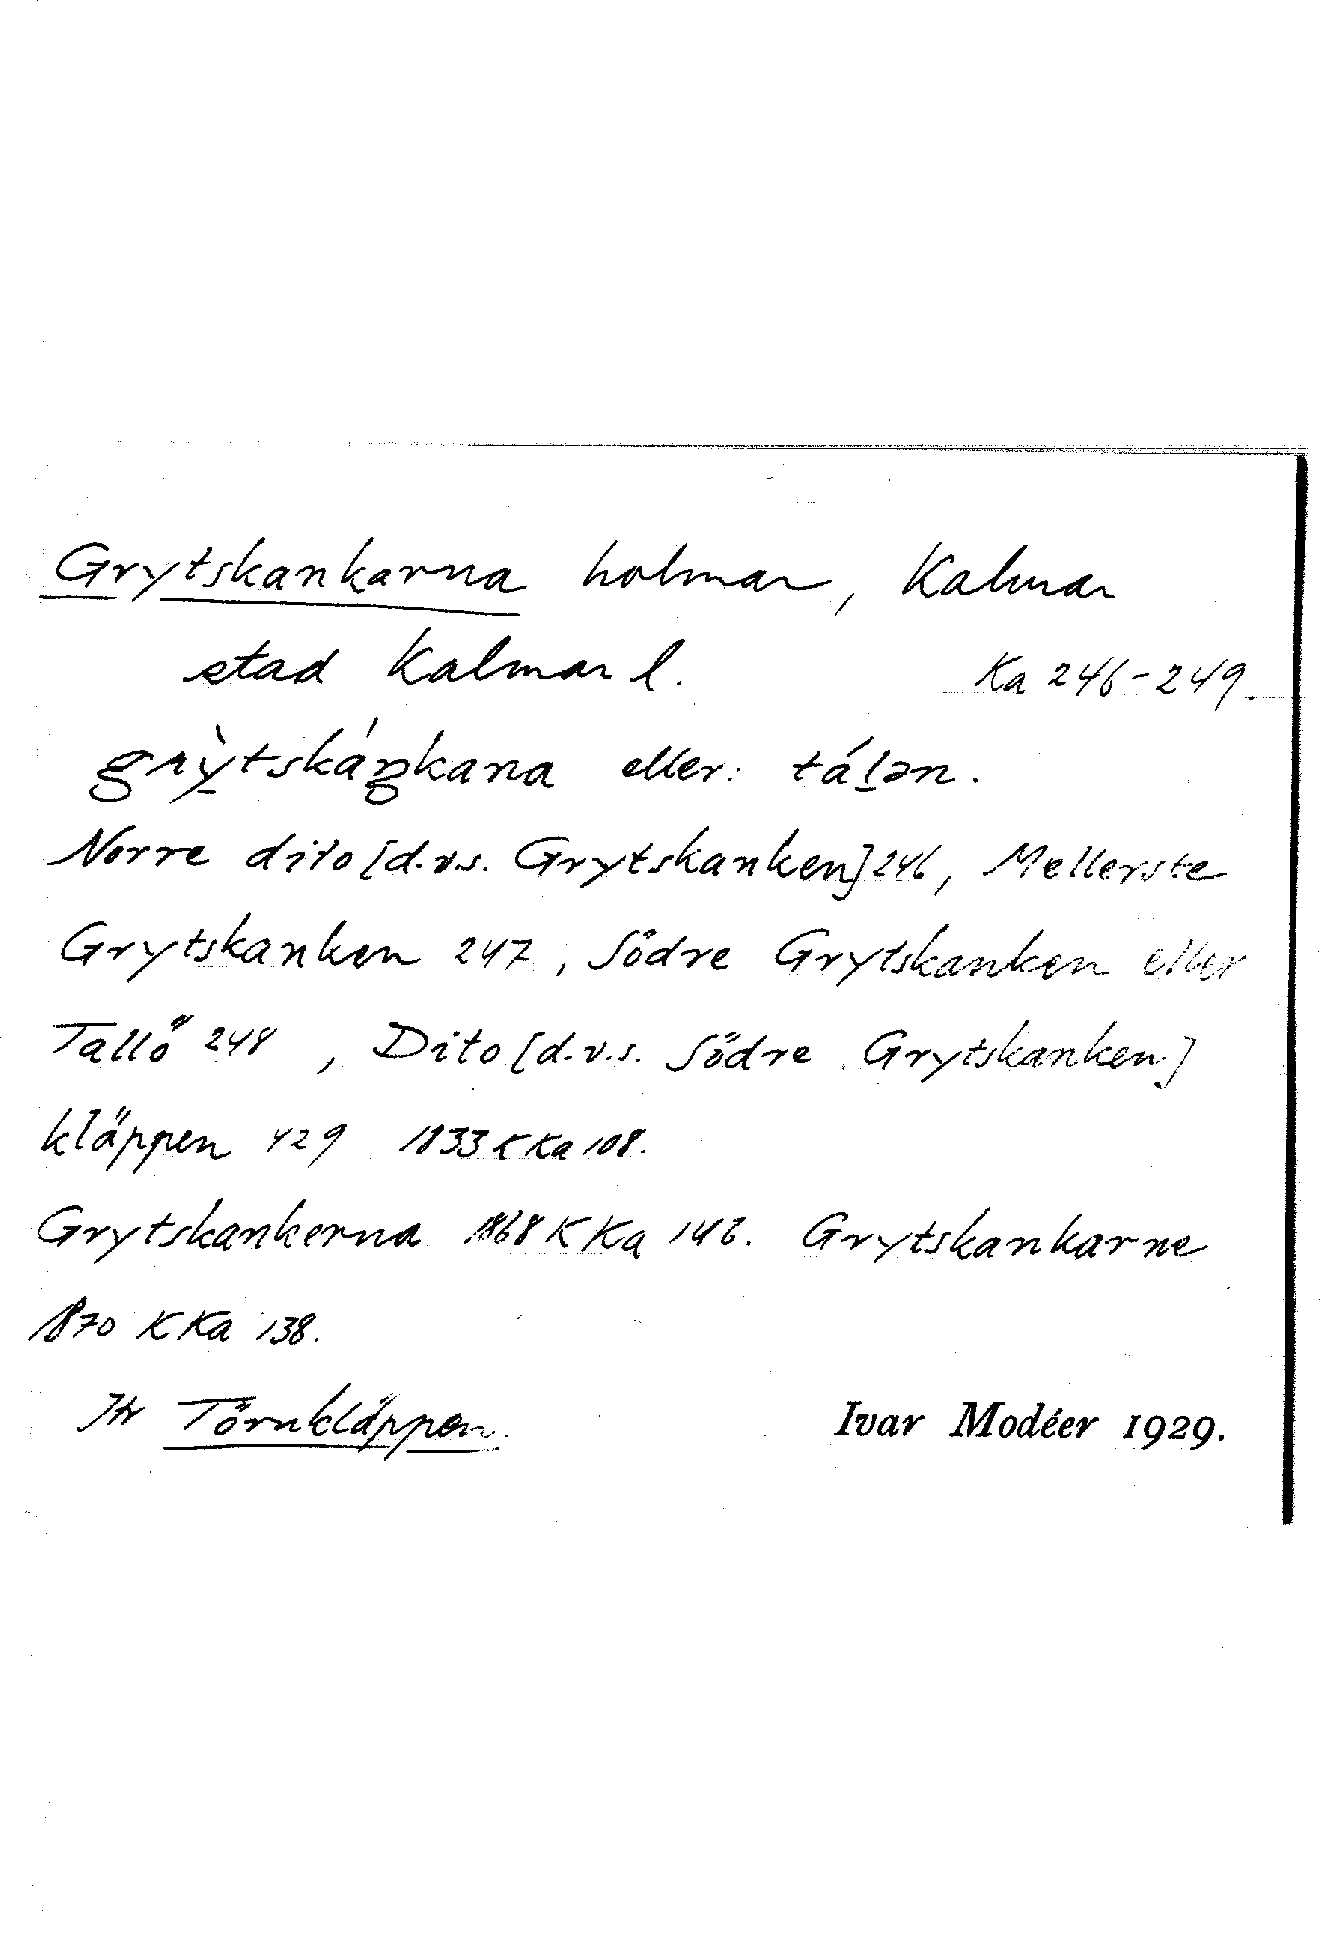 Grytskankarna holmar, Kalmar
stad Kalmar l. Ka 246-249
grỳtskáŋkana eller: tálən.
Norre dito [d.v.s. Grytskanken] 246, Mellerste
Grytskanken 247, Södre Grytskanken eller
Tallö 248, Dito [d.v.s. Södre Grytskanken]
kläppen 429 1833 K Ka 108.
Grytskankerna 1868 K Ka 146. Grytskankarne
1870 K Ka 138.
Jfr Törnkläppen. Ivar Modéer 1929.